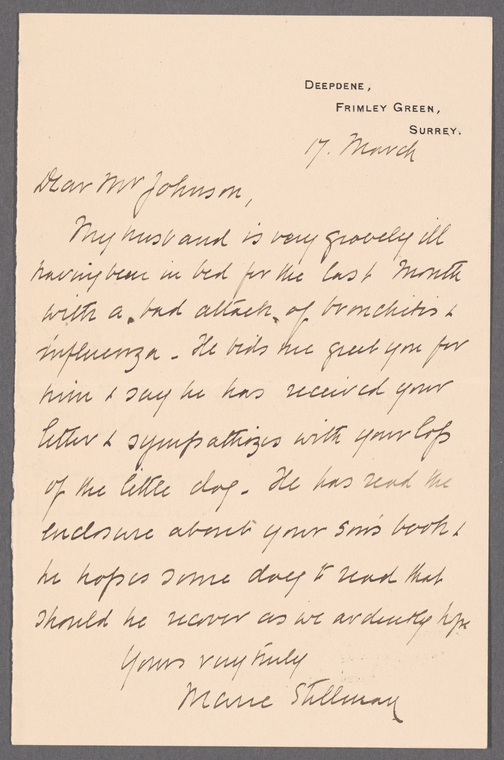 DEEPDENE,
FRIMLEY GREEN,
SURREY.
17. March
Dear Mr Johnson,
My husband is very gravely ill
having been in bed for the last month
with a bad attack of bronchitis &
influenza. He bids me greet you for
him & say he has received your
letter & sympathizes with your loss
of the little dog. He has read the
enclosure about your son's book &
he hopes some day to read that
should he recover as we ardently hope
Yours very truly
Marie Stillman